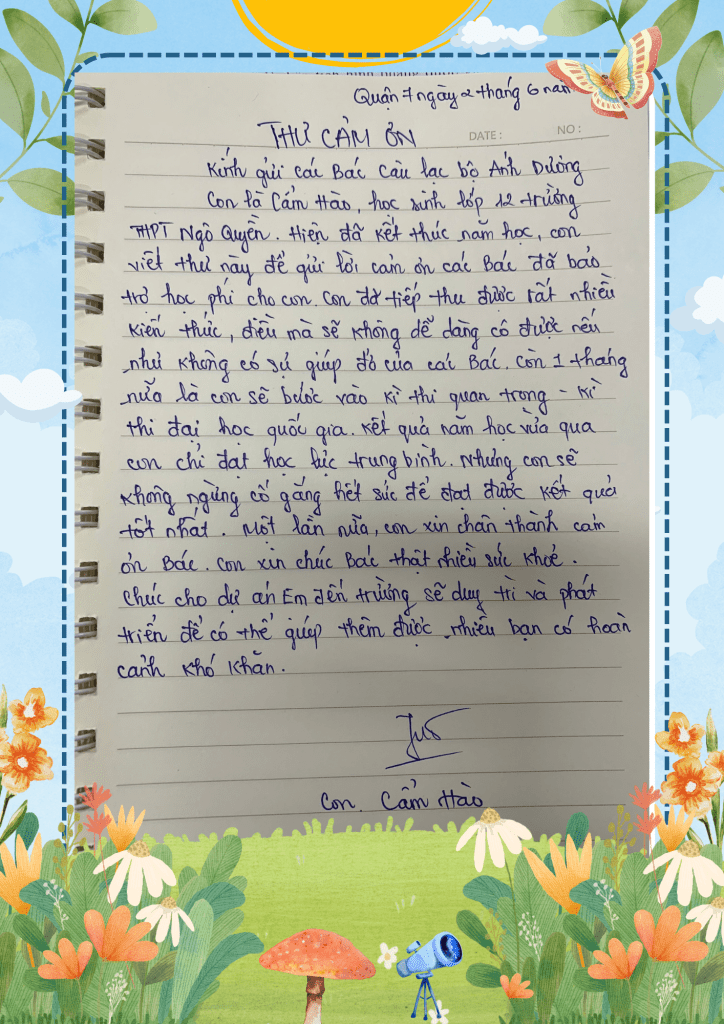 Quận 7 ngày 2 tháng 6 năm
THƯ CẢM ƠN
DATE :
NO :
Kính gửi các Bác Câu lạc bộ Ánh Dương
Con là Cẩm Hào, học sinh lớp 12 trường
THPT Ngô Quyền. Hiện đã kết thúc năm học, con
viết thư này để gửi lời cảm ơn các Bác đã bảo
trợ học phí cho con. Con đã tiếp thu được rất nhiều
kiến thức, điều mà sẽ không dễ dàng có được nếu
như không có sự giúp đỡ của các Bác. Con 1 tháng
nữa là con sẽ bước vào kì thi quan trọng - kì
thi đại học quốc gia. Kết quả năm học vừa qua
con chỉ đạt học lực trung bình. Nhưng con sẽ
không ngừng cố gắng hết sức để đạt được kết quả
tốt nhất. Một lần nữa, con xin chân thành cảm
ơn Bác. Con xin chúc Bác thật nhiều sức khoẻ.
Chúc cho dự án Em đến trường sẽ duy trì và phát
triển để có thể giúp thêm được nhiều bạn có hoàn
cảnh khó khăn.
Con. Cẩm Hào